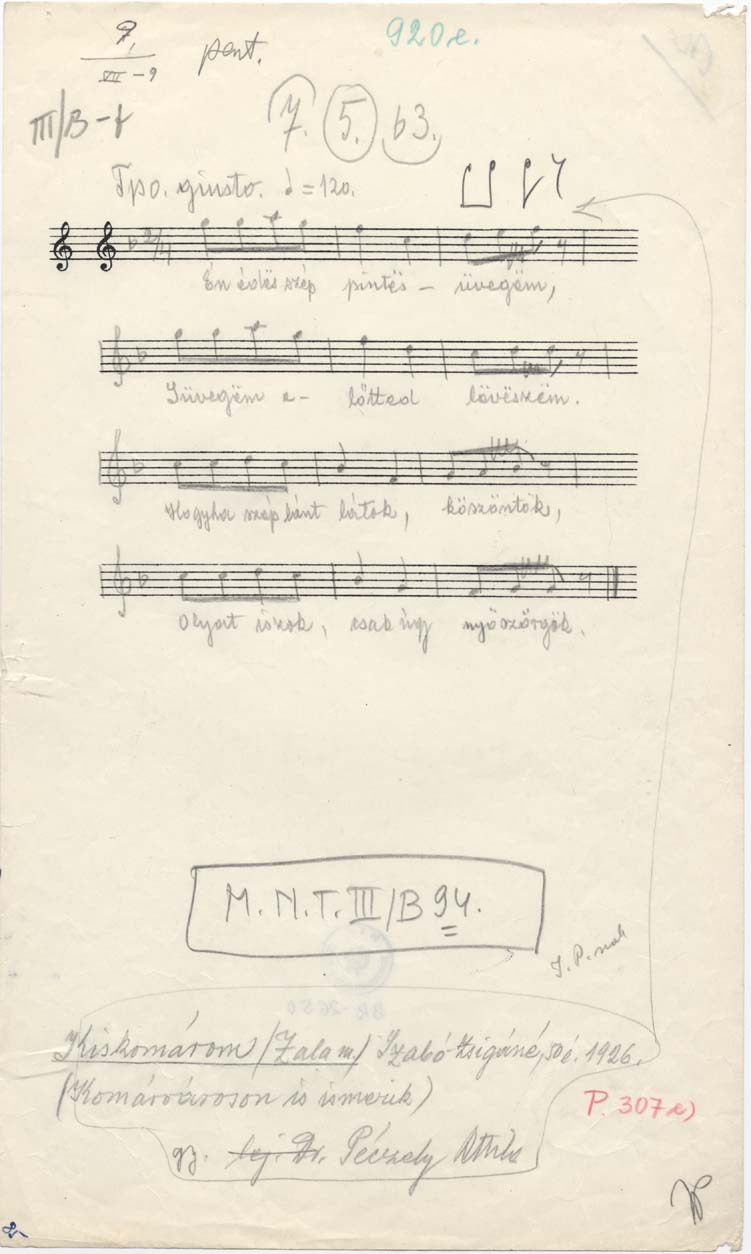 7. pent. 920e.
VII-9
III/B-f
7. 5. b3.
Tpo. giusto. = 120.
2/4
Én édës szép pintës - üvegëm,
Züvegëm e- lőtted lövëszëm.
Hogyha szép lánt látok, köszöntök,
Olyat iszok, csak úgy nyöszörgök.
M. N. T. III/B 94.
J. P. nak
Kiskomárom (Zala m.) Szabó Zsigáné, 50 é. 1926.
(Komárvároson is ismerik)
P. 307e)
gy. lej. Dr. Péczely Attila